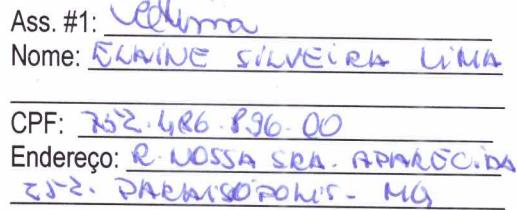 Ass. #1:
Nome: ELAINE SILVEIRA LIMA
CPF: 752.486.896-00
Endereço: R. NOSSA SRA. APARECIDA
252. PARAISÓPOLIS - MG